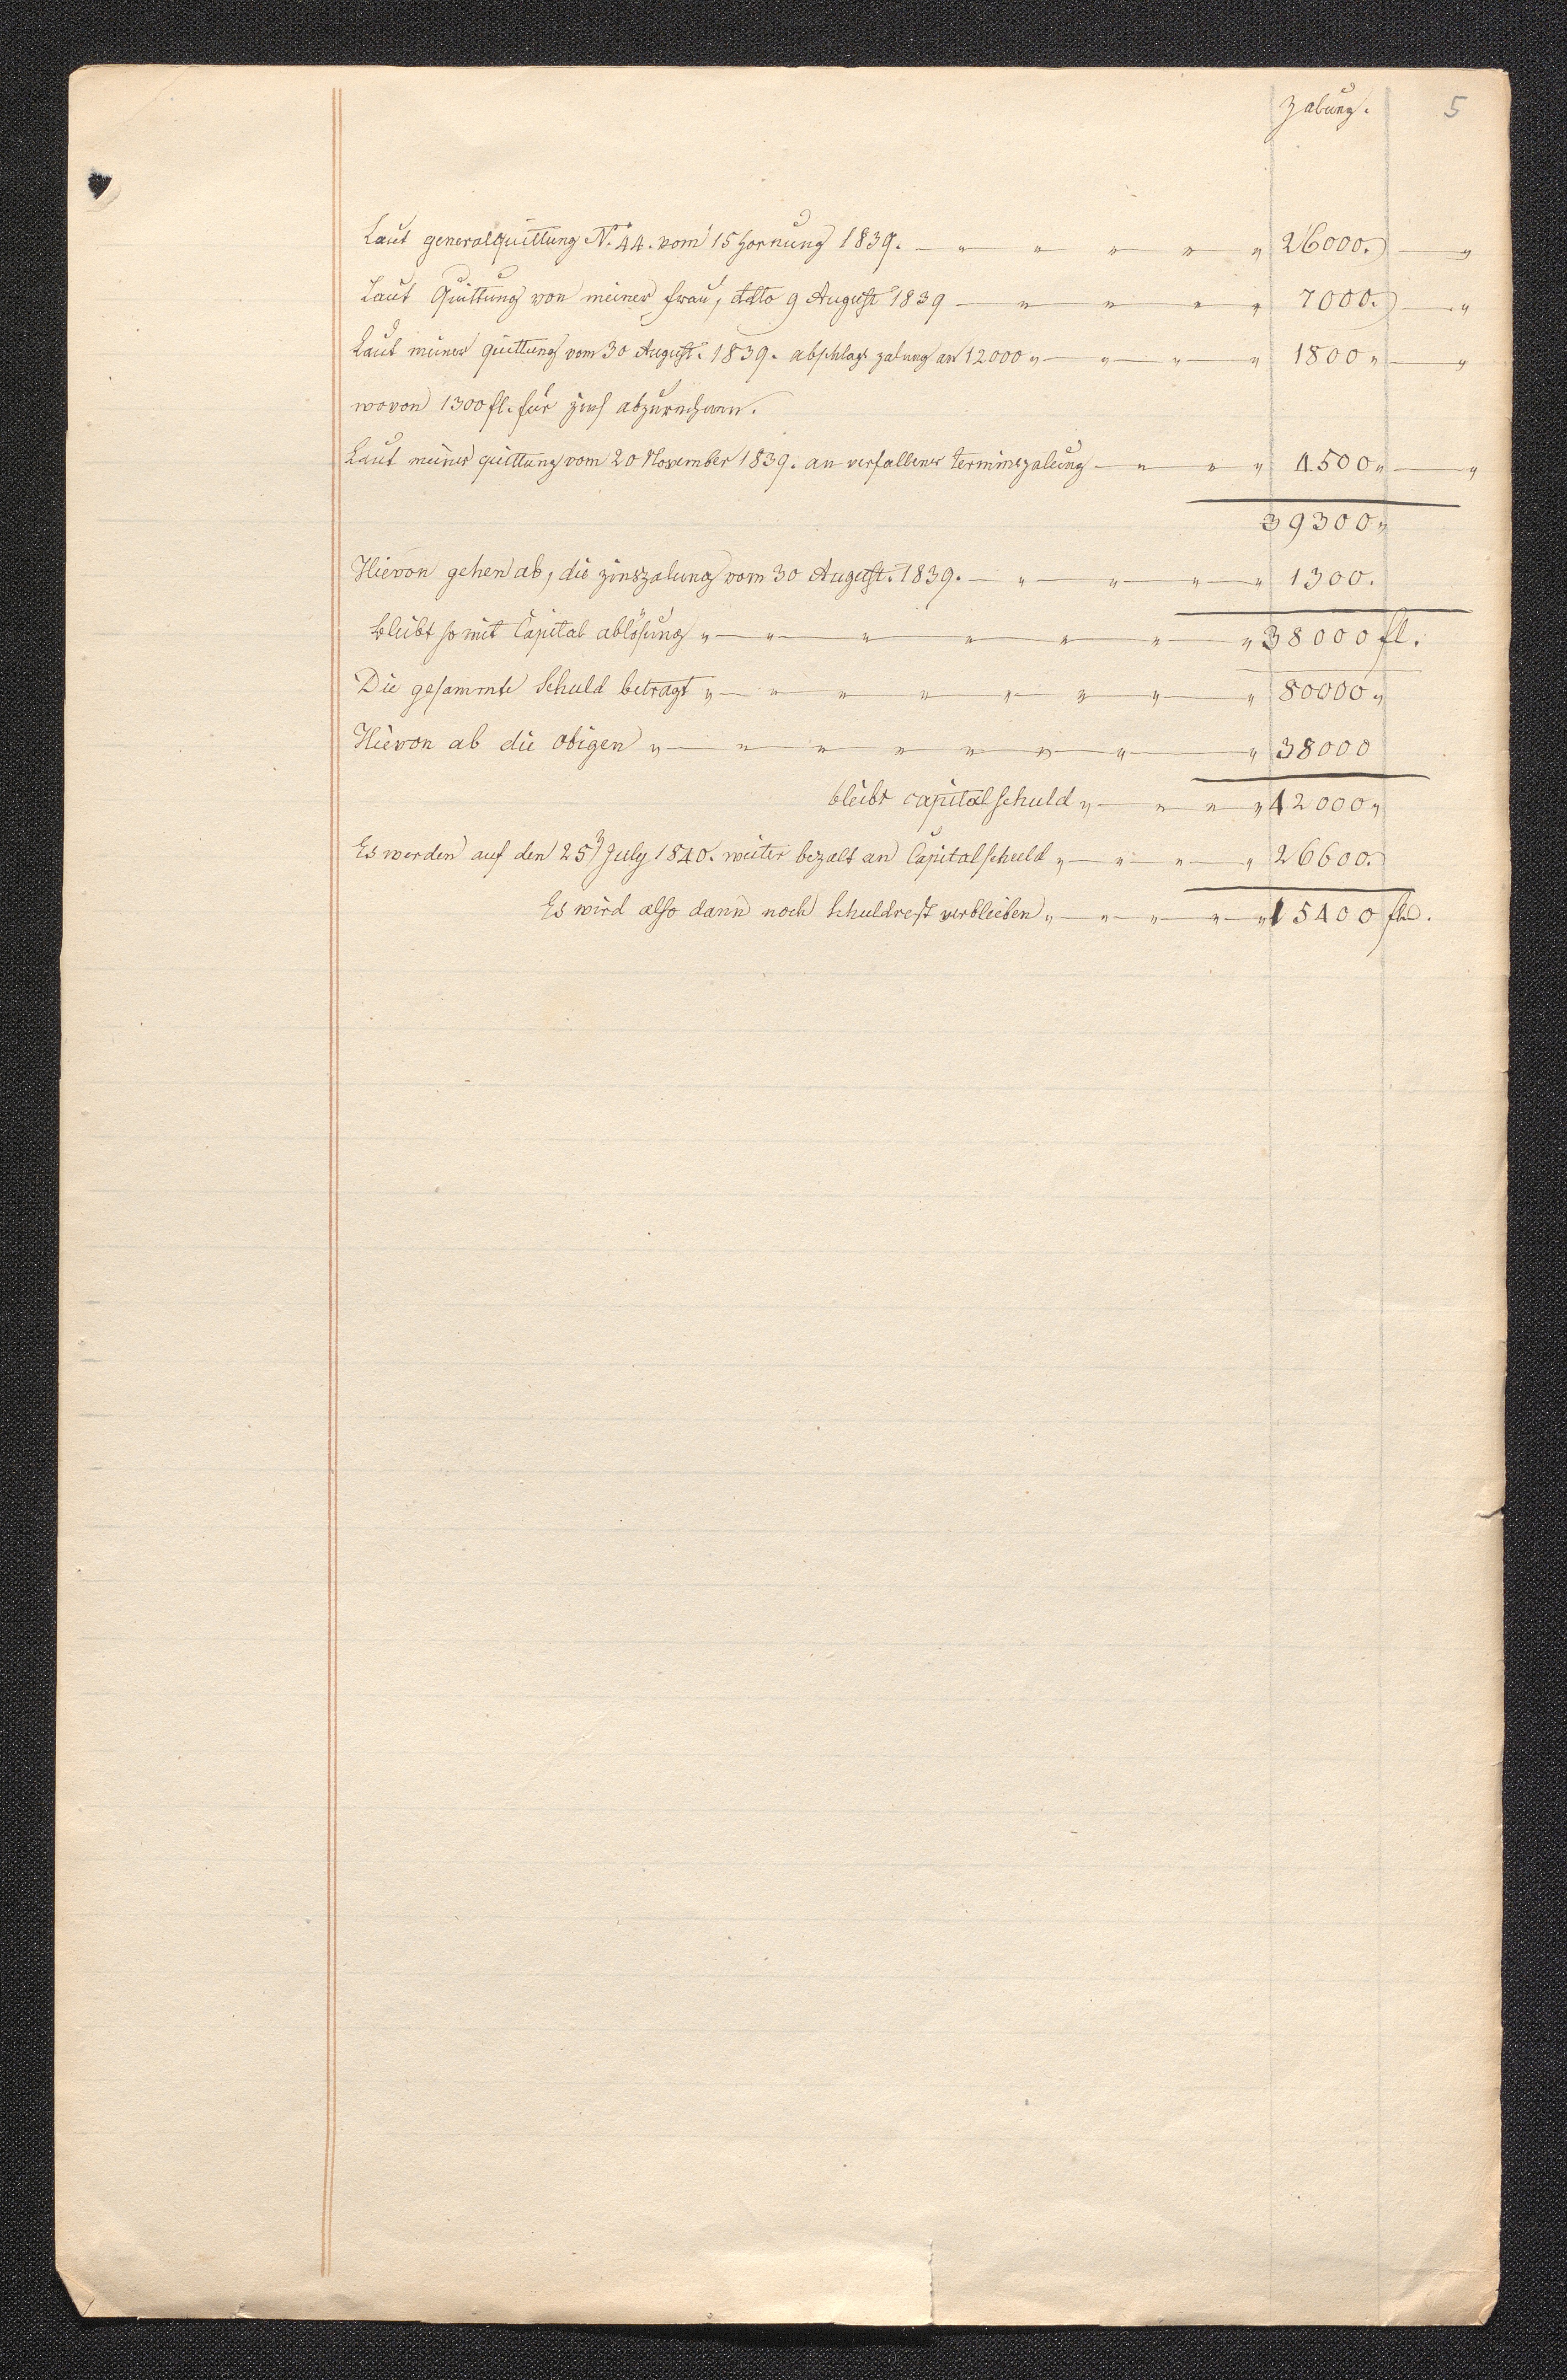 Zalung. 5
Laut generalquittung N. 44. vom 15 Hornung 1839. — „ „ „ „ „ 26000. — „
Laut Quittung von meiner Frau, ddto 9 August 1839 — „ „ „ „ 7000. — „
Laut meiner quittung vom 30 August. 1839. abschlags zalung an 12000 „ — „ — „ — „ 1800 „ — „
wovon 1300 fl. für Zins abzurechnen.
Laut meiner quittung vom 20 November 1839. an verfallener Terminszalung — „ „ „ 4500 „ — „
39300 „
Hievon gehen ab, die zinszalung vom 30 August. 1839. — „ — „ — „ — „ 1300.
bleibt somit Capital ablösung „ — „ — „ — „ — „ — „ — „ 38000 fl.
Die gesammte Schuld betragt „ — „ — „ — „ — „ — „ — „ — „ 80000 „
Hievon ab die obigen „ — „ — „ — „ — „ — „ — „ — „ 38000
bleibt capitalschuld „ — „ — „ — „ 42000 „
Es werden auf den 25 July 1840. weiter bezalt an Capitalschuld „ — „ — „ — „ 26600.
Es wird also dann noch Schuldrest verbleiben „ — „ — „ — „ — „ 15400 fl.